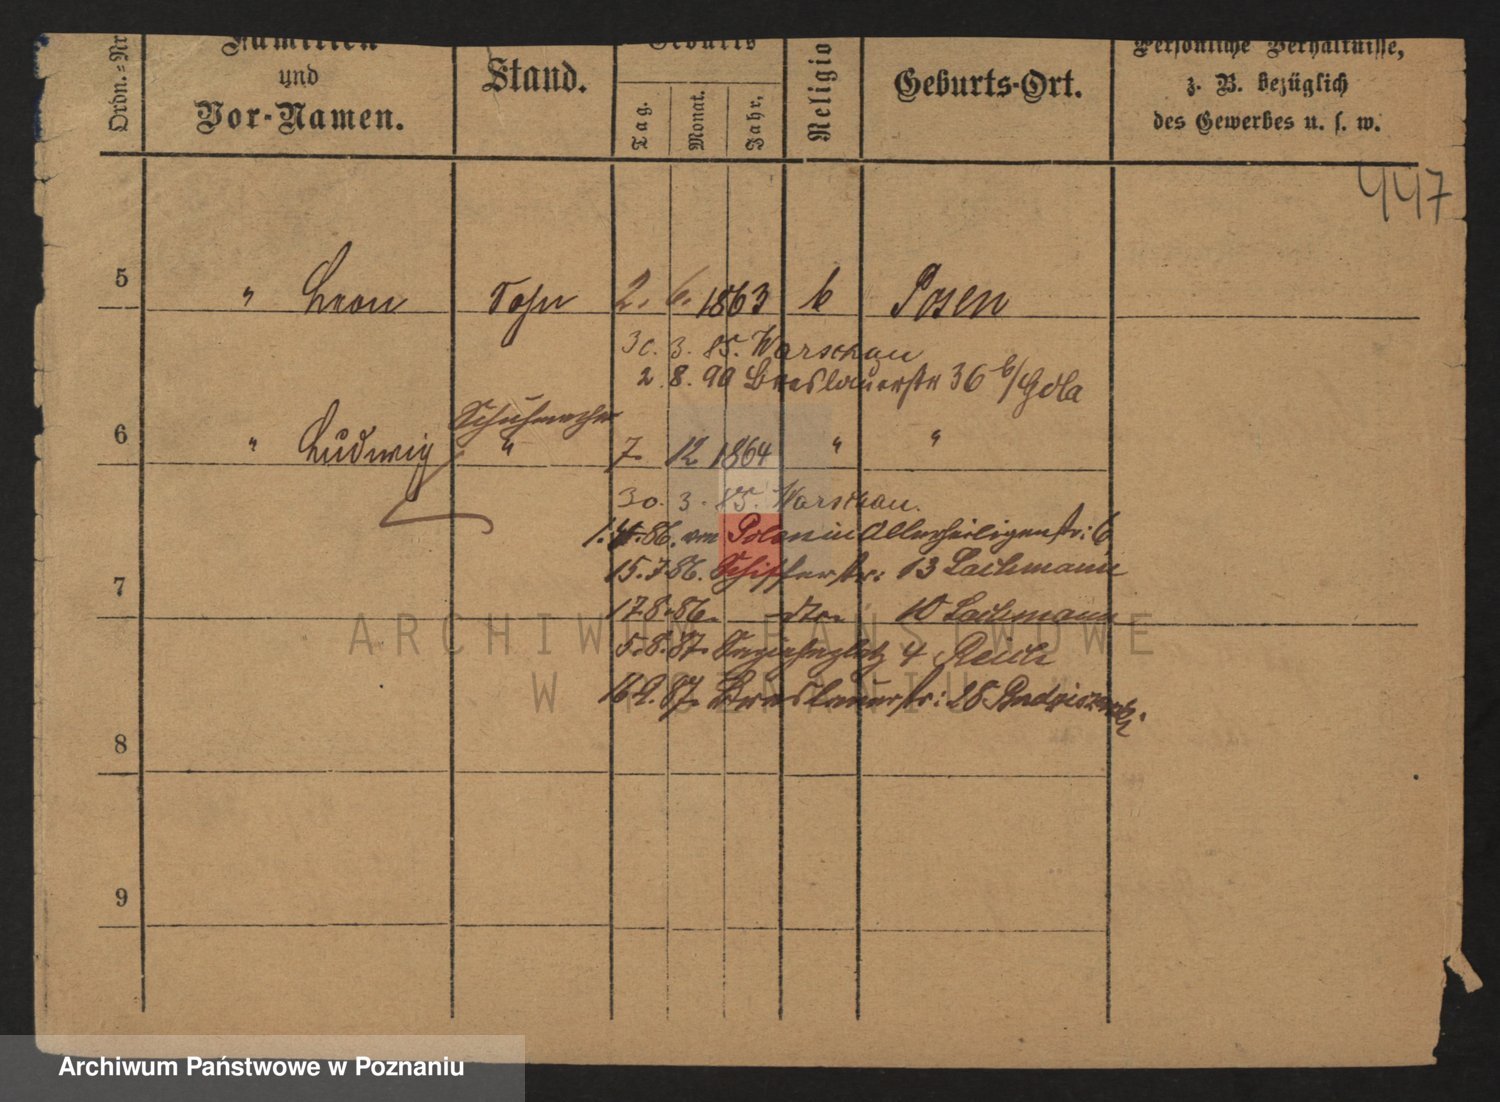 Ordn.-Nr
Familien
und
Vor-Namen.
Stand.
Geburts
Tag.
Monat.
Jahr.
Religio
Geburts-Ort.
Persönliche Verhältnisse,
z. B. bezüglich
des Gewerbes u. s. w.
447
5 " Leon Sohn 2. 6. 1863 k Posen
30. 3. 85. Warschau
2. 8. 90 Breslauerstr 36 b/
Schuhmacher
6 " Ludwig " 7. 12 1864 " "
30. 3. 85. Warschau.
86. von Polen in Allerheiligenstr: 6
7 15.7.86. Schifferstr: 13 Lachmann
17.8.86. dto. 10 Lachmann
5.8.87. Sapiehaplatz 4 Reich
16.9.87. Breslauerstr: 28
8
9
ARCHIWUM PAŃSTWOWE
W POZNANIU
Archiwum Państwowe w Poznaniu